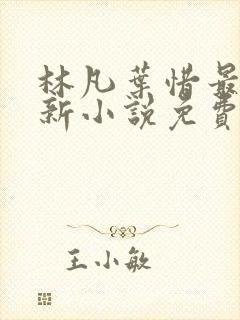 林凡葉惜最
新小說免費
王小敏